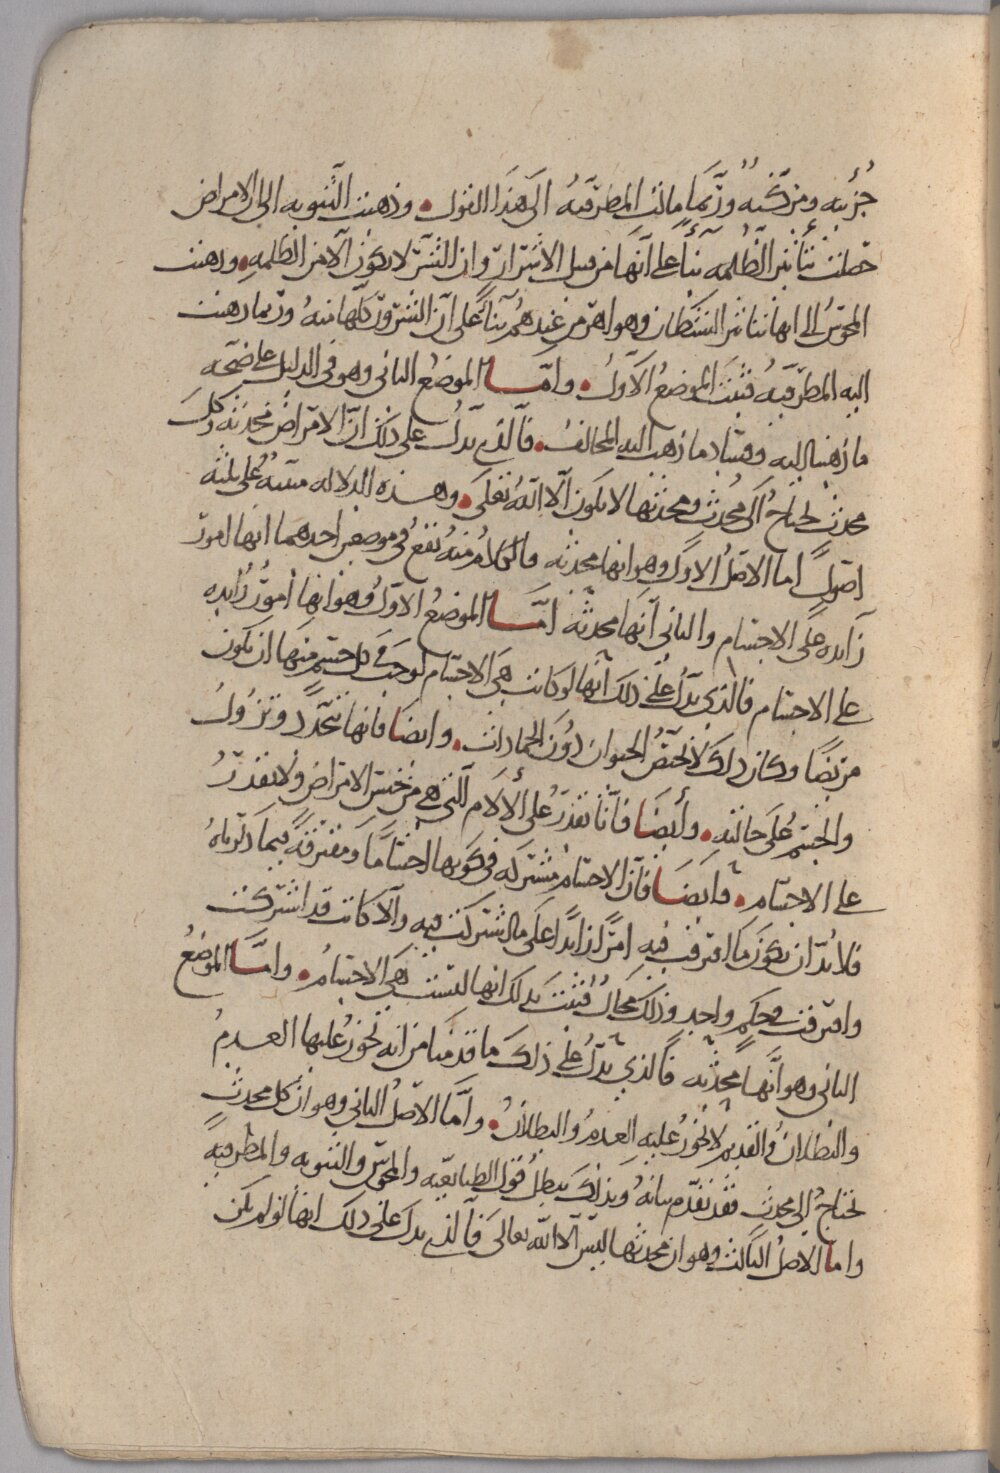 جُزْئيه ومركبَيه وربَّما مالت المطرفيَّه الى هَذَا القول • وذهبت الثَّنويه الى ان الامراض
حصلت بتأثير الظُّلمه بناً على انَّها من قبيل الاشرار وان الشَّر لا يكون الا من الظلمه • وذهبت
المجوسُ الى انها بتاثير الشيطان وهو اهرمن عندهُم بناً على ان الشرور كلَّها منهُ وربما ذهبت
اليه المطرَّفيه فثبت الموضعُ الاوَّلُ • وامَّا الموضع الثانى وهو فى الدليل على صحَّه
ما ذهبنا اليه وفساد ما ذهب اليه المخالفُ • فالَّذى يدلُّ على ذلك انَّ الامراض محدثه وكل
محدث يحتاجُ الى مُحدِث ومحدثها لا يكون الَّا اللهُ تعالى • وهذه الدلاله مبنيَّهُ على ثلثه
اصولٍ اما الاصلُ الاول وهو انها محدثه فالكلامُ منهُ يقعُ فى موضعين احدهما انها امورٌ
زايده على الاجسام والثانى انَّها محدثه امَّا الموضعُ الاولُ وهو انها امورٌ زايده
على الاجسام فالذي يدلُّ على ذلك انَّها لو كانت هى الاجسام لوجب فى كل جسم منها ان يكون
مريضًا وكان ذلك لا يختصُّ الحيوان دُون الجمادات • وايضا فانها تتجدَّد وتزولُ
والجسمُ على حالته • وأيضَا فانَّا نقدرُ على الآلام الَّتي هى من جنس الامراض ولا نقدرُ
على الاجسَام • وايضَا فان الاجسام مُشتركه فى كونها اجسَاماً ومفترقهً فيما ذكرناهُ
فلا بُدَّ ان يكونَ ما افترقت فيه امرًا زايدًا على ما اشتركت فيه والَّا كانت قد اشتركت
وافترقت فى حكم واحدٍ وذلك محالٌ فثبت بذلك انها ليست هى الاجسامُ • وامَّا الموضعُ
الثانى وهو انَّها محدَثه فالذي يدلُّ على ذلك ما قدمنا من انه يجوزُ عليها العدمُ
والبطلانُ والقديمُ لا يجوزُ عليه العدمُ والبطلانُ • وامَّا الاصلُ الثانى وهو ان كل محدثٍ
يحتاجُ الى محدث فقد تقدَّم بيانهُ وبذلك يبطلُ قولُ الطبائعيَّه والمجوس والثنويه والمطرفيهً
واما الاصلُ الثالث وهو ان محدثها ليس الَّا الله تعالى فالَّذى يدل على ذلك انها لو لم يكن